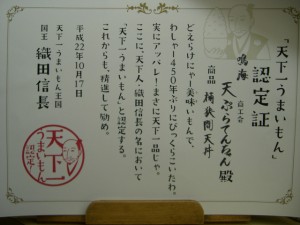 「天下一うまいもん」
認定証
鳴海 商工会
天ぷらてんてん殿
商品 桶狭間天丼
どえらけにゃー美味いもんで、
わしゃー450年ぶりにびっくらこいたわ。
実にアッパレ!まさに天下一品じゃ。
ここに、天下人・織田信長の名において
「天下一うまいもん」と認定する。
これからも、精進して励め。
平成22年10月17日
天下一うまいもん王国
国王 織田信長
天下一
うまいもん
認定